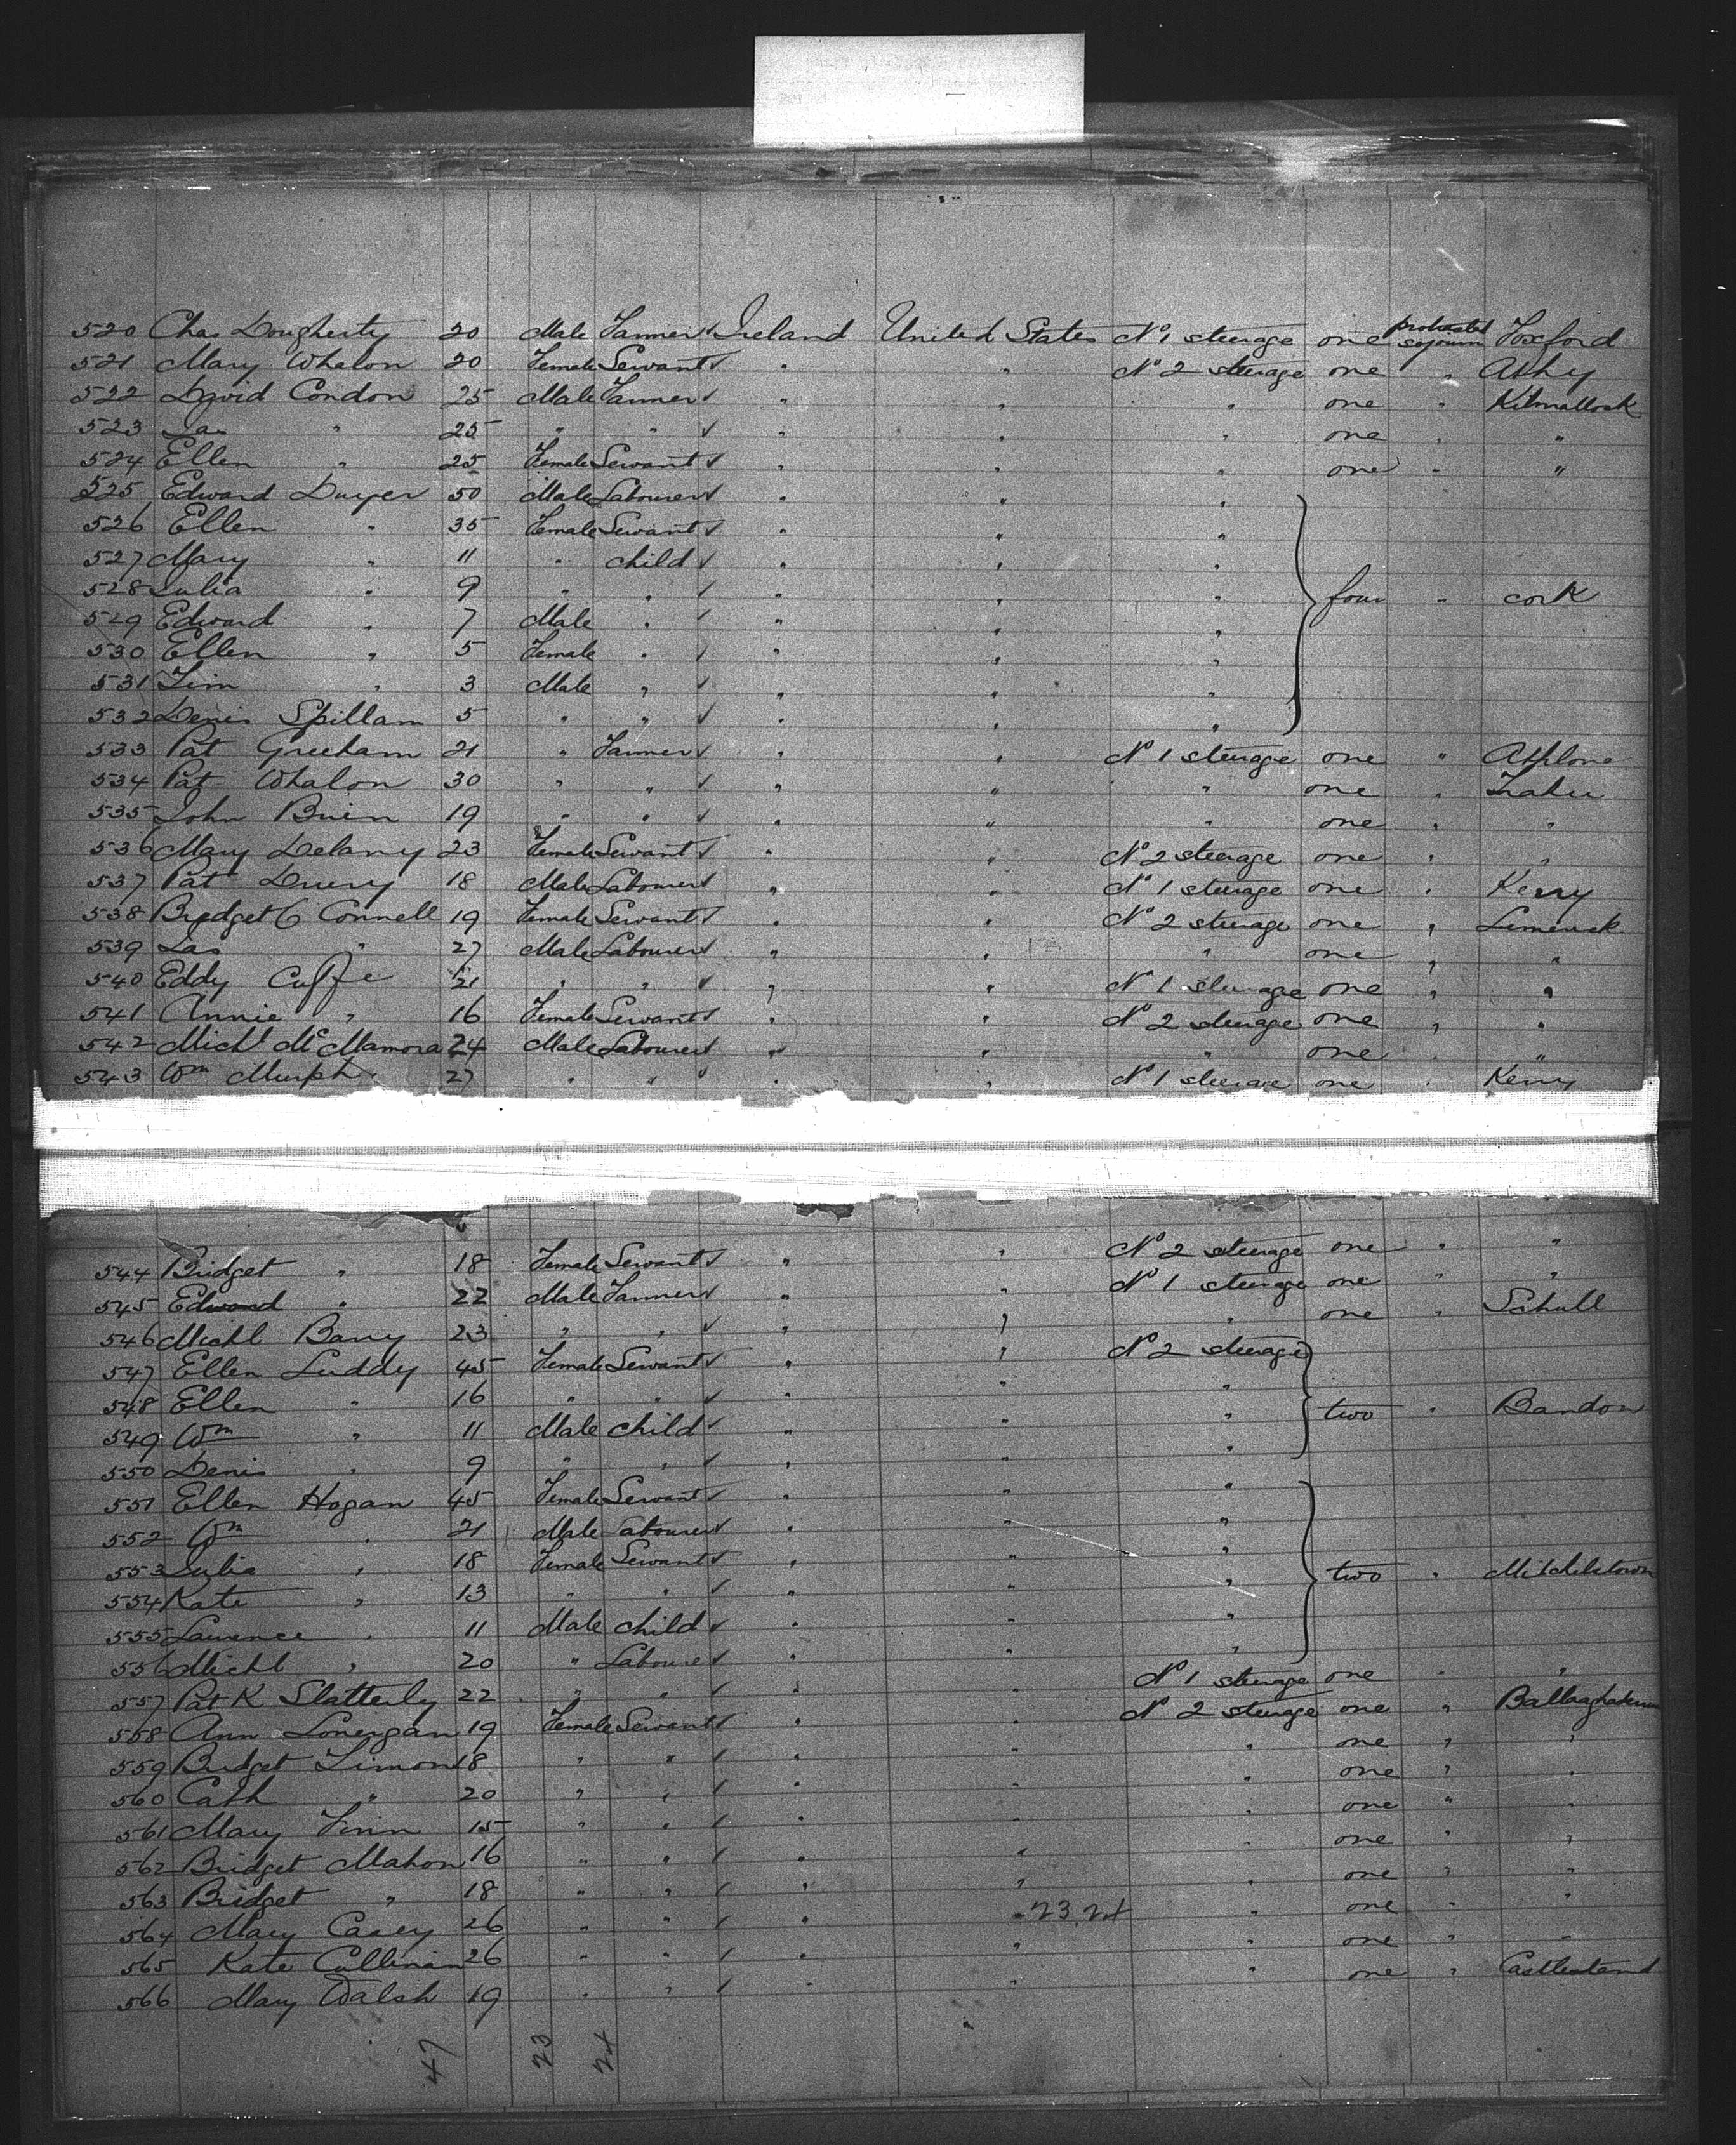 520 Chas Dougherty 20 Male Farmer Ireland United States No 1 steerage one protracted sojourn Foxford
521 Mary Whalon 20 Female Servant " " No 2 steerage one " Athy
522 David Condon 25 Male Farmer " " " one " Kilmallock
523 Jas " 25 " " " " " one " "
524 Ellen " 25 Female Servant " " " one " "
525 Edward Dwyer 50 Male Labourer " " "
526 Ellen " 35 Female Servant " " "
527 Mary " 11 " child " " "
528 Julia " 9 " " " " " four " cork
529 Edward " 7 Male " " " "
530 Ellen " 5 Female " " " "
531 Tim " 3 Male " " " "
532 Denis Spillam 5 " " " " "
533 Pat Greeham 21 " Farmer " " No 1 steerage one " Athlone
534 Pat Whalon 30 " " " " " one "
535 John Brien 19 " " " " " one " "
536 Mary Delany 23 Female Servant " " No 2 steerage one " "
537 Pat Drury 18 Male Labourer " " No 1 steerage one " Kerry
538 Bridget O Connell 19 Female Servant " " No 2 steerage one " Limerick
539 Jas " 27 Male Labourer " " " one " "
540 Eddy Cuffe 21 " " " " No 1 steerage one " "
541 Annie " 16 Female Servant " " No 2 steerage one " "
542 Michl McMamora 24 Male Labourer " " " one " "
543 Wm Murph 27 " " " " No 1 steerage one " Kerry
544 Bridget " 18 Female Servant " " No 2 steerage one " "
545 Edward " 22 Male Farmer " " No 1 steerage one " "
546 Michl Barry 23 " " " " " one " Schull
547 Ellen Luddy 45 Female Servant " " No 2 steerage
548 Ellen " 16 " " " " "
549 Wm " 11 Male child " " " two " Bandon
550 Denis " 9 " " " " "
551 Ellen Hogan 45 Female Servant " " "
552 Wm " 21 Male Labourer " " "
553 Julia " 18 Female Servant " " "
554 Kate " 13 " " " " " two " Mitchelstown
555 Lawrence " 11 Male child " " "
556 Michl " 20 " Labourer " " "
557 Pat K Slatterly 22 " " " " No 1 steerage one " "
558 Ann Lonergan 19 Female Servant " " No 2 steerage one "
559 Bridget Timon 18 " " " " " one " "
560 Cath " 20 " " " " " one " "
561 Mary Finn 15 " " " " " one " "
562 Bridget Mahon 16 " " " " " one " "
563 Bridget " 18 " " " " " one " "
564 Mary Casey 26 " " " 23.24 " one " "
565 Kate Cullinan 26 " " " " " one " "
566 Mary Walsh 19 " " " " " one "
47 23 24